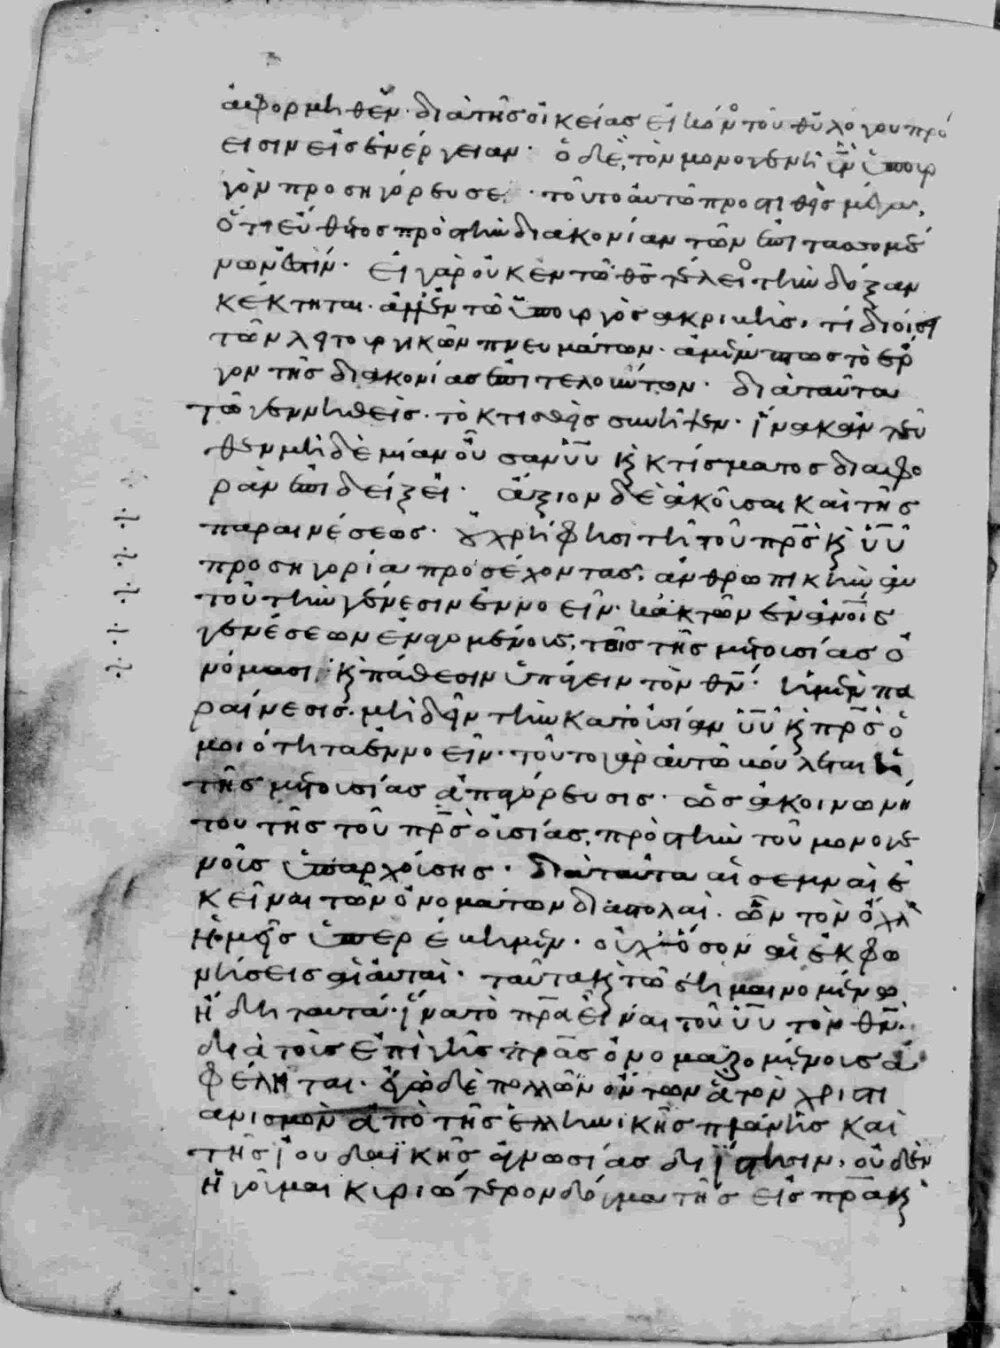 ἀφορμηθεν· διὰ τῆς οἰκείας εἰκόν τοῦ θυ λόγου πρό
εισιν εἰς ἐνέργειαν· ὁ δὲ, τὸν μονογενῆ υν ὑπουρ
γὸν προσηγόρευσε· τοῦτο αὐτῶ προστιθεὶς μέγα,
ὅτι εὐθὺς πρὸς τὴν διακονίαν τῶν ἐπιτασσομέ
νων ἐστίν· εἰ γὰρ οὐκ ἐν τῶ θς τέλειος τὴν δόξαν
κέκτηται· ἀλλ' ἐν τῶ ὑπουργὸς ἀκριβὴς, τί διοίσει
τῶν λειτουργικῶν πνευμάτων· ἀμέμπτως τὸ ἔρ
γον τῆς διακονίας ἐπιτελούντων· διὰ ταῦτα
τῶ γεννηθεὶς· τὸ κτισθεὶς συνῆψεν· ἵνα κἀντεῦ
θεν μηδὲ μίαν οὖσαν υυ κ κτίσματος διαφο
ρὰν ἐπιδείξει· ἄξιον δὲ ἀκοῦσαι καὶ τῆς
παραινέσεως· οὐ χρή φησι τῆ τοῦ πρς κ υυ
προσηγορία προσέχοντας, ἀνθρωπικὴν αὐ
τοῦ τὴν γένεσιν ἐννοεῖν· κακ τῶν ἐν ανοις
γενέσεων ἐναρμένοις, τοῖς τῆς μετουσίας ὀ
νόμασι· κ πάθεσιν ὑπάγειν τὸν θν· ἡ μὲν πα
ραίνεσις· μηδὲν τὴν κατ' οὐσίαν υυ κ πρς ὁ
μοιότητα ἐννοεῖν· τοῦτο γὰρ αὐτῶ βούλεται ἡ
τῆς μετουσίας ἀπαγόρευσις· ὡς ἀκοινωνή
του τῆς τοῦ πρς οὐσίας, πρὸς τὴν τοῦ μονογε
νοῦς ὑπαρχούσης· διὰ ταῦτα αἱ σεμναὶ ἐ
κεῖναι τῶν ὀνομάτων διαστολαὶ·
ἡμεῖς ὑπερ οὐχ ὅσον αἱ ἐκφω
νήσεις αἱ αὐταὶ· ταῦτα κ τῶ σημαινομένω
ἤδη ταυτὰ· ἵνα τὸ πρα εἶναι τοῦ υυ τὸν θν·
διὰ τοὺς ἐπὶ γῆς πρας ὀνομαζομένους ἀ
φέληται· ἐγὼ δὲ πολλῶν ὄντων ἃ τὸν χριστι
ανισμὸν ἀπὸ τῆς ἑλληνικῆς πλάνης καὶ
τῆς ἰουδαϊκῆς ἀγνωσίας διΐστησιν, οὐδὲν
ἡγοῦμαι κυριώτερον δόγμα τῆς εἰς πρα κ